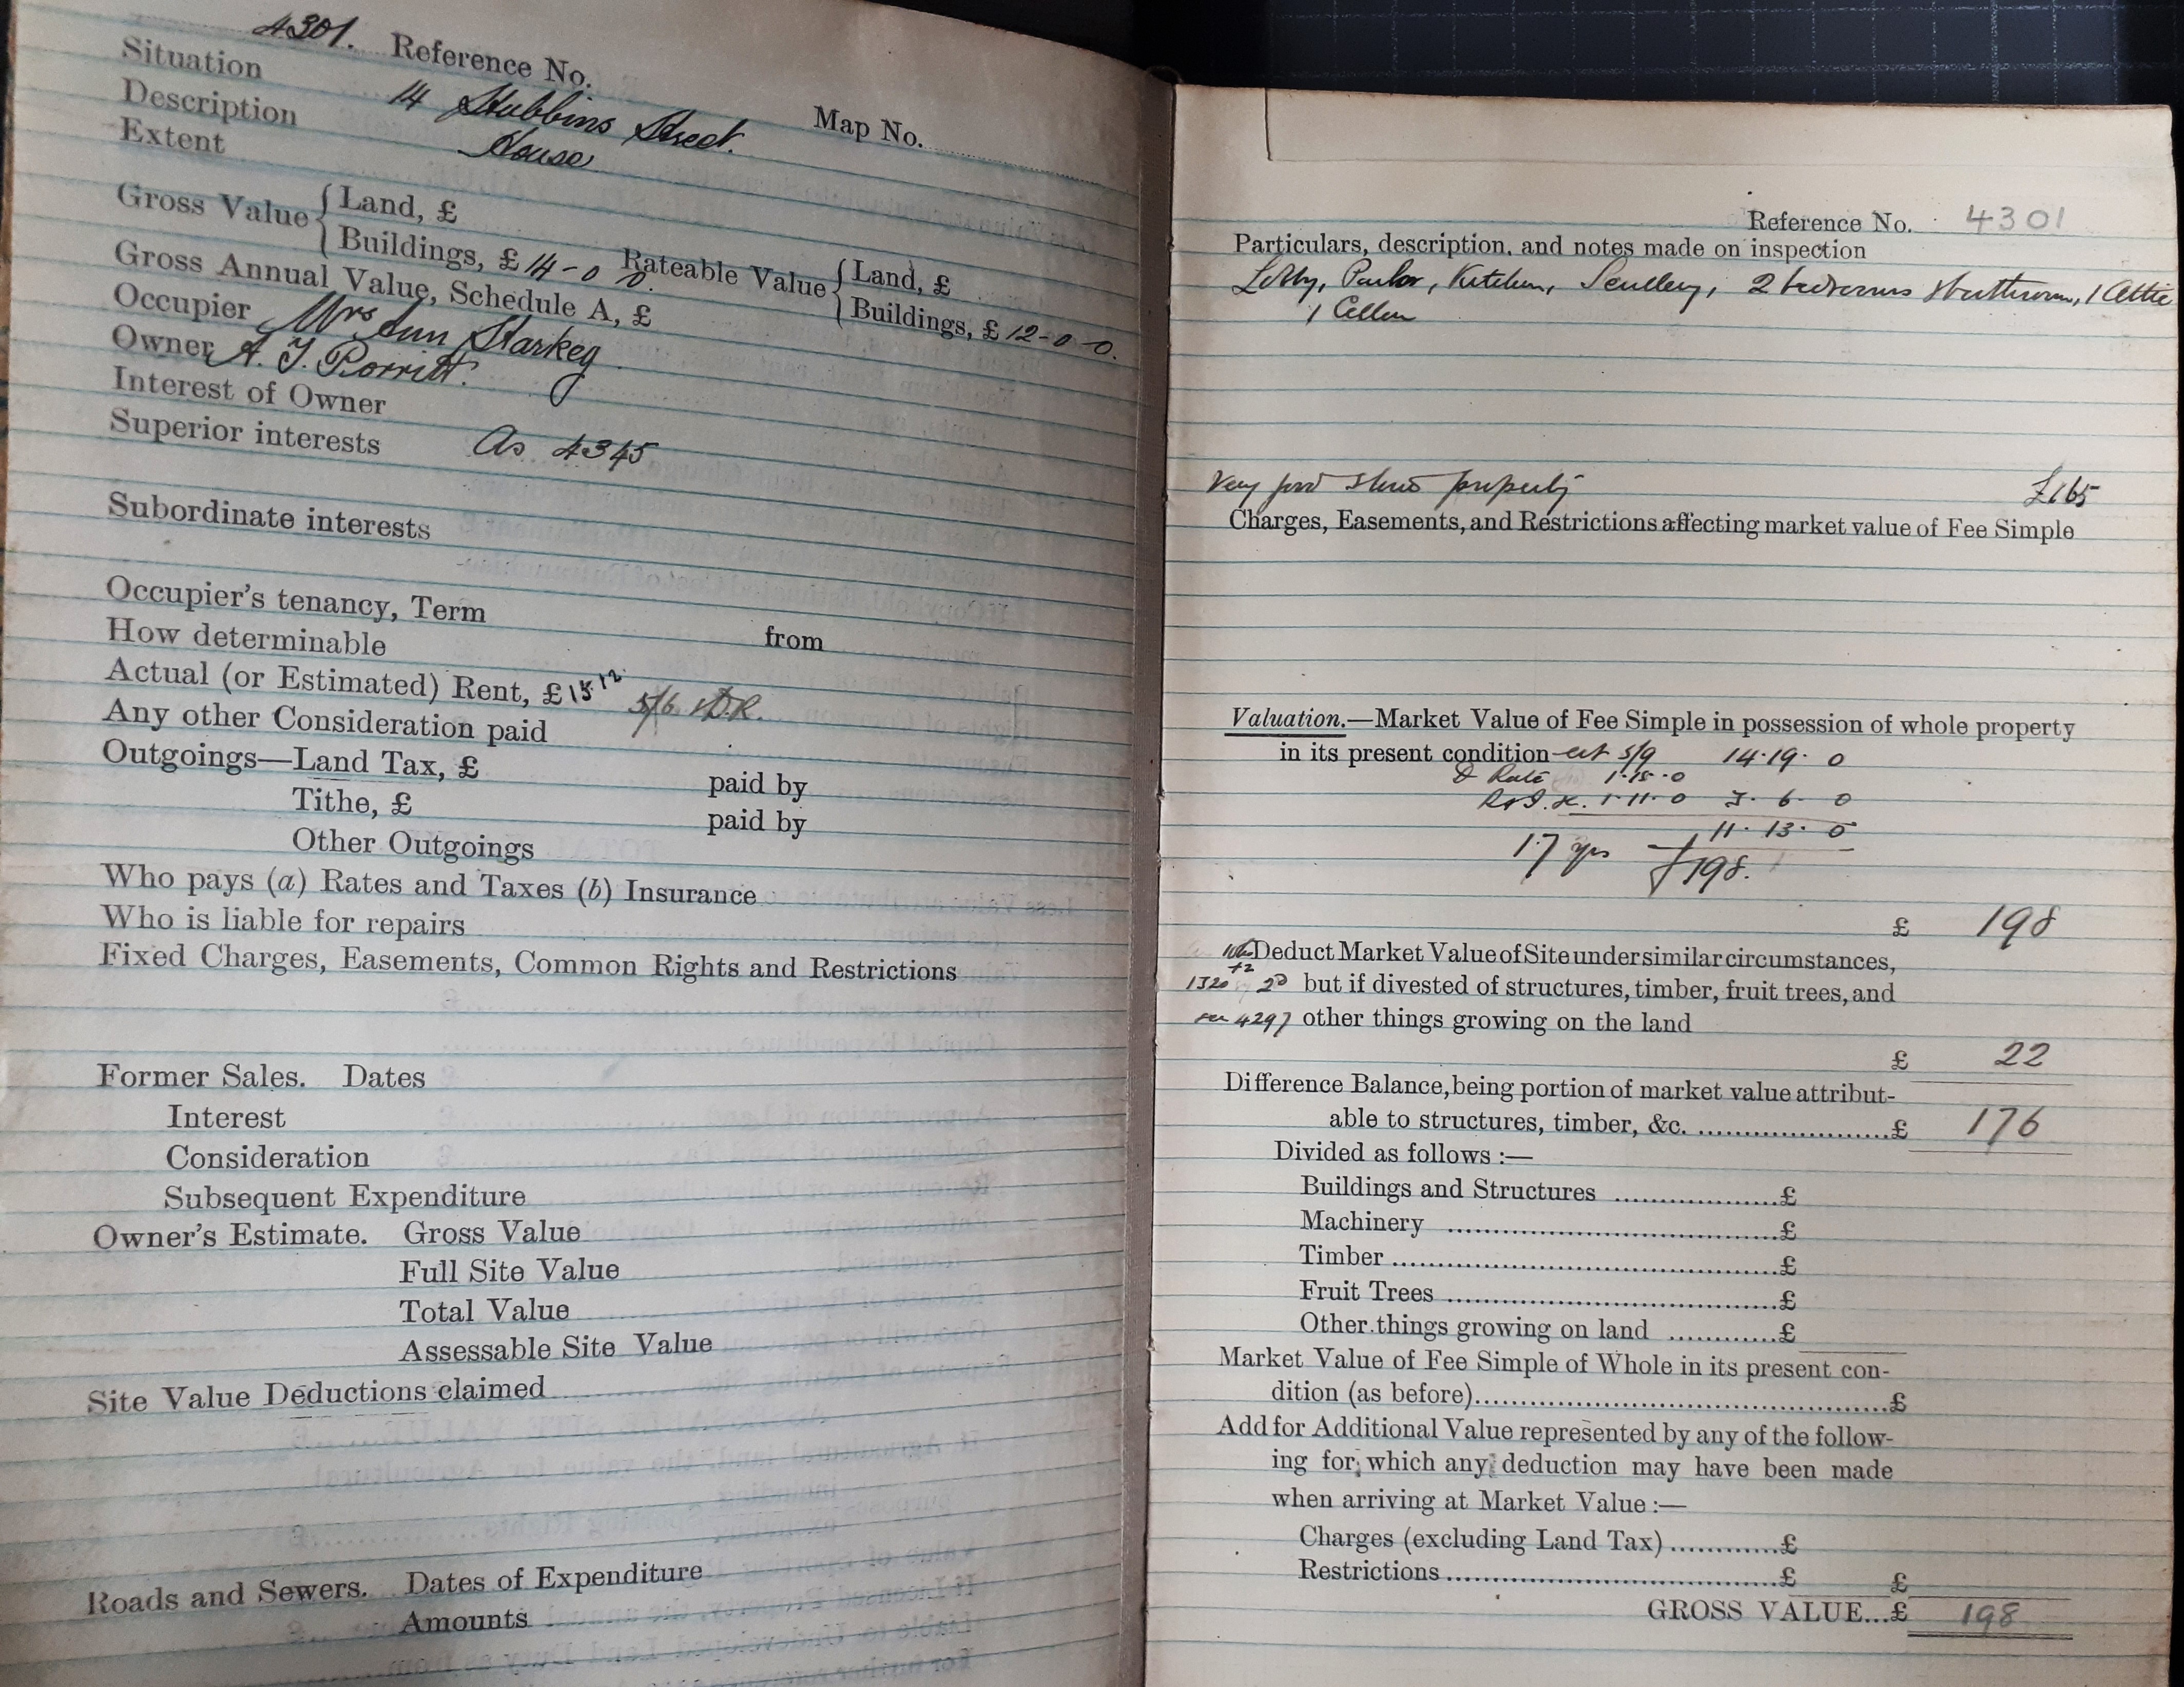 4301. Reference No.
Map No.
Situation 14 Stubbins Street.
Description House
Extent
Gross Value { Land, £
Buildings, £ 14-0 0. Rateable Value { Land, £
Buildings, £ 12-0-0.
Gross Annual Value, Schedule A, £
Occupier Mrs Ann Starkey
Owner A. T. Porritt.
Interest of Owner
Superior interests As 4345
Subordinate interests
Occupier's tenancy, Term from
How determinable
Actual (or Estimated) Rent, £15.12. 5/6 D.R.
Any other Consideration paid
Outgoings—Land Tax, £ paid by
Tithe, £ paid by
Other Outgoings
Who pays (a) Rates and Taxes (b) Insurance
Who is liable for repairs
Fixed Charges, Easements, Common Rights and Restrictions
Former Sales. Dates
Interest
Consideration
Subsequent Expenditure
Owner's Estimate. Gross Value
Full Site Value
Total Value
Assessable Site Value
Site Value Deductions claimed
Roads and Sewers. Dates of Expenditure
Amounts
Reference No. 4301
Particulars, description, and notes made on inspection
Lobby, Parlor, Kitchen, Scullery, 2 bedrooms & bathroom, 1 Attic
1 Cellar
Very good stone property £165
Charges, Easements, and Restrictions affecting market value of Fee Simple
Valuation.—Market Value of Fee Simple in possession of whole property
in its present condition est 5/9 14.19.0
D Rate 1.15.0
1.11.0 3.6.0
11.13.0
17 yrs £198.
£ 198
Deduct Market Value of Site under similar circumstances,
1320 2D but if divested of structures, timber, fruit trees, and
see 4297 other things growing on the land
£ 22
Difference Balance, being portion of market value attribut-
able to structures, timber, &c. £ 176
Divided as follows :—
Buildings and Structures £
Machinery £
Timber £
Fruit Trees £
Other things growing on land £
Market Value of Fee Simple of Whole in its present con-
dition (as before) £
Add for Additional Value represented by any of the follow-
ing for which any deduction may have been made
when arriving at Market Value :—
Charges (excluding Land Tax) £
Restrictions £ £
GROSS VALUE...£ 198